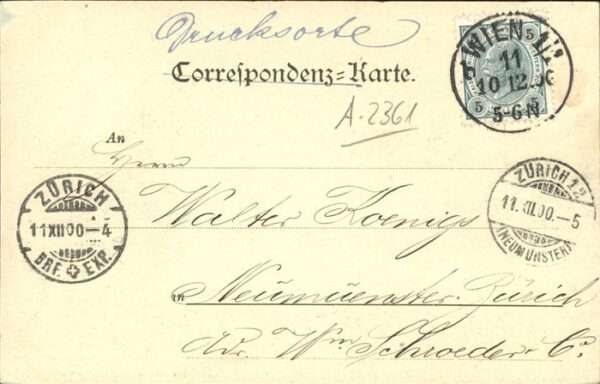 Drucksorte
Correspondenz=Karte.
A-2361
5
WIEN
11
10 12
5-6 N
5 5
An
Herrn
Walter Koenigs
in Neumuenster-Zürich
adr. Wm Schroeder & Co.
ZÜRICH
11 XII 00-4
BRF. EXP.
ZÜRICH 12
11.XII.00.-5
(NEUMÜNSTER)